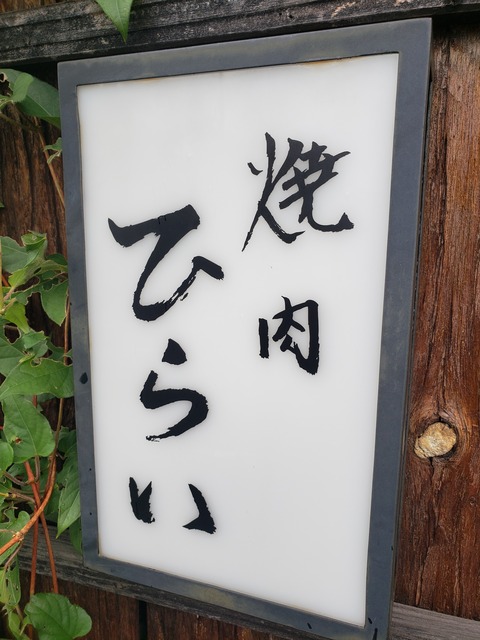 焼肉
ひらい